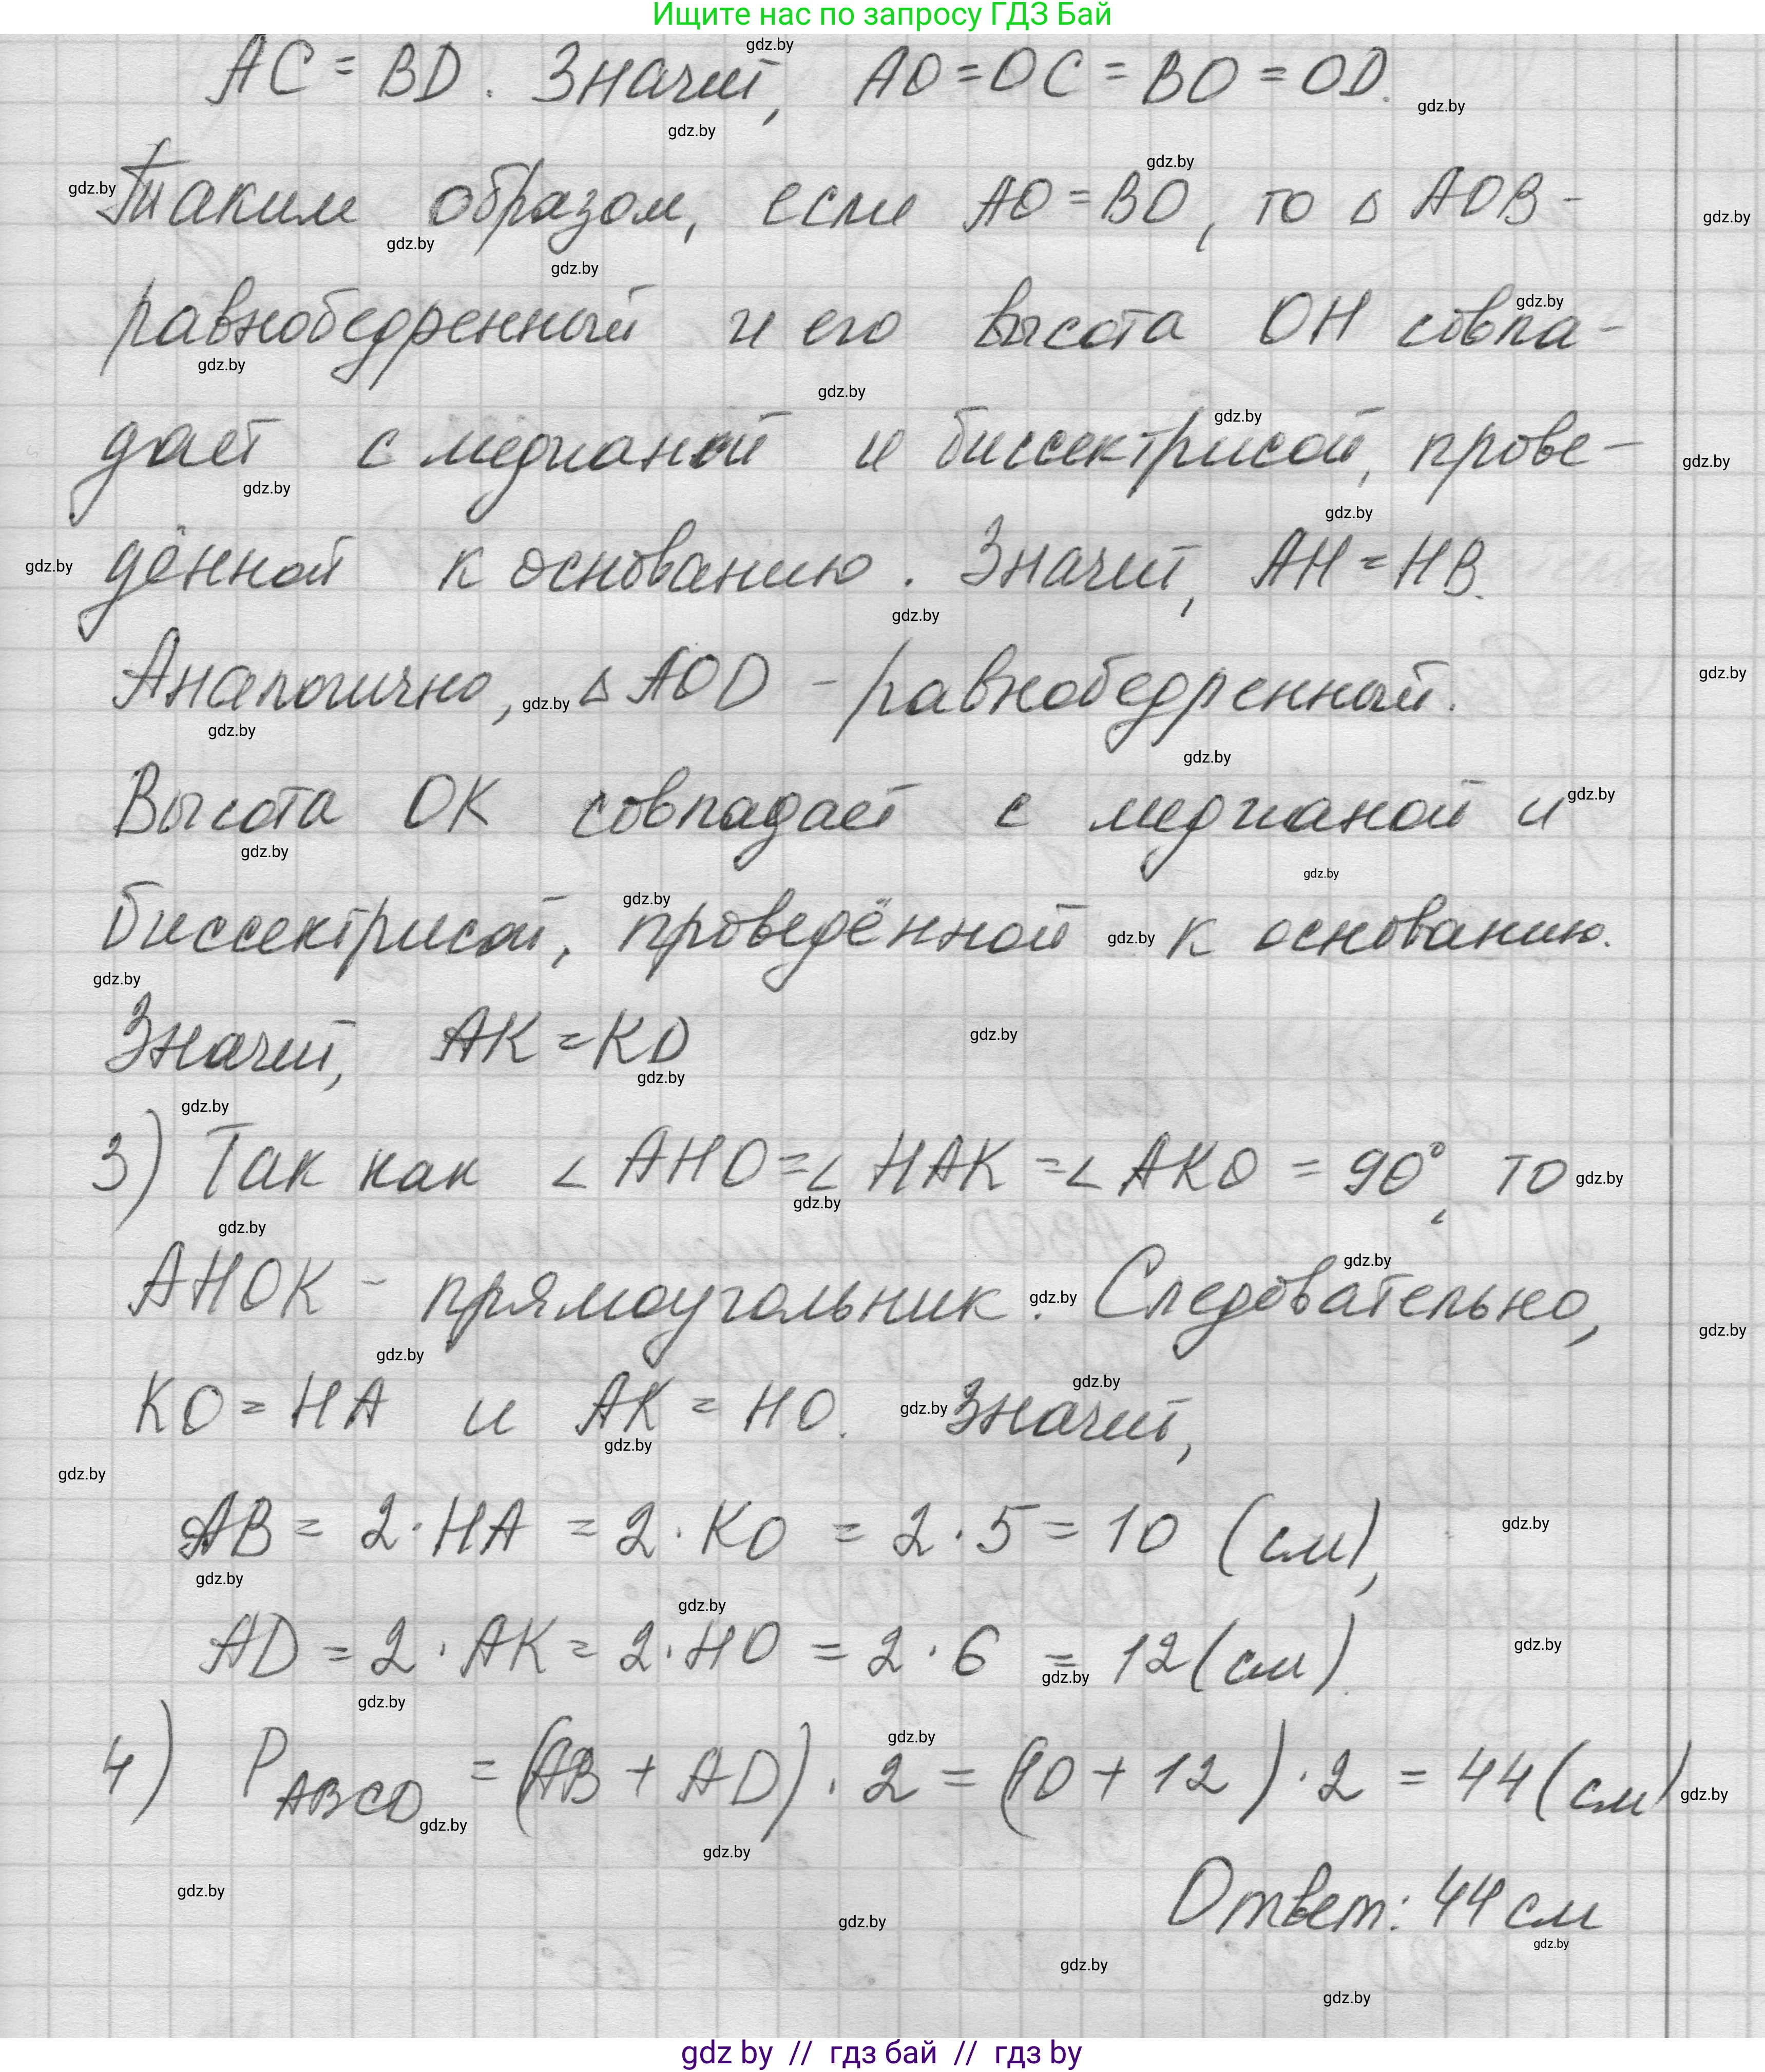 Ищите нас по запросу ГДЗ Бай
AC = BD. Значит, AO = OC = BO = OD.
Таким образом, если AO = BO, то △ AOB -
равнобедренный и его высота OH совпа-
дает с медианой и биссектрисой, прове-
дённой к основанию. Значит, AH = HB.
Аналогично, △ AOD - равнобедренный.
Высота OK совпадает с медианой и
биссектрисой, проведённой к основанию.
Значит, AK = KD
3) Так как ∠ AHO = ∠ HAK = ∠ AKO = 90°, то
AHOK - прямоугольник. Следовательно,
KO = HA и AK = HO. Значит,
AB = 2 · HA = 2 · KO = 2 · 5 = 10 (см),
AD = 2 · AK = 2 · HO = 2 · 6 = 12 (см).
4) P ABCD = (AB + AD) · 2 = (10 + 12) · 2 = 44 (см)
Ответ: 44 см
gdz by // гдз бай // гдз by